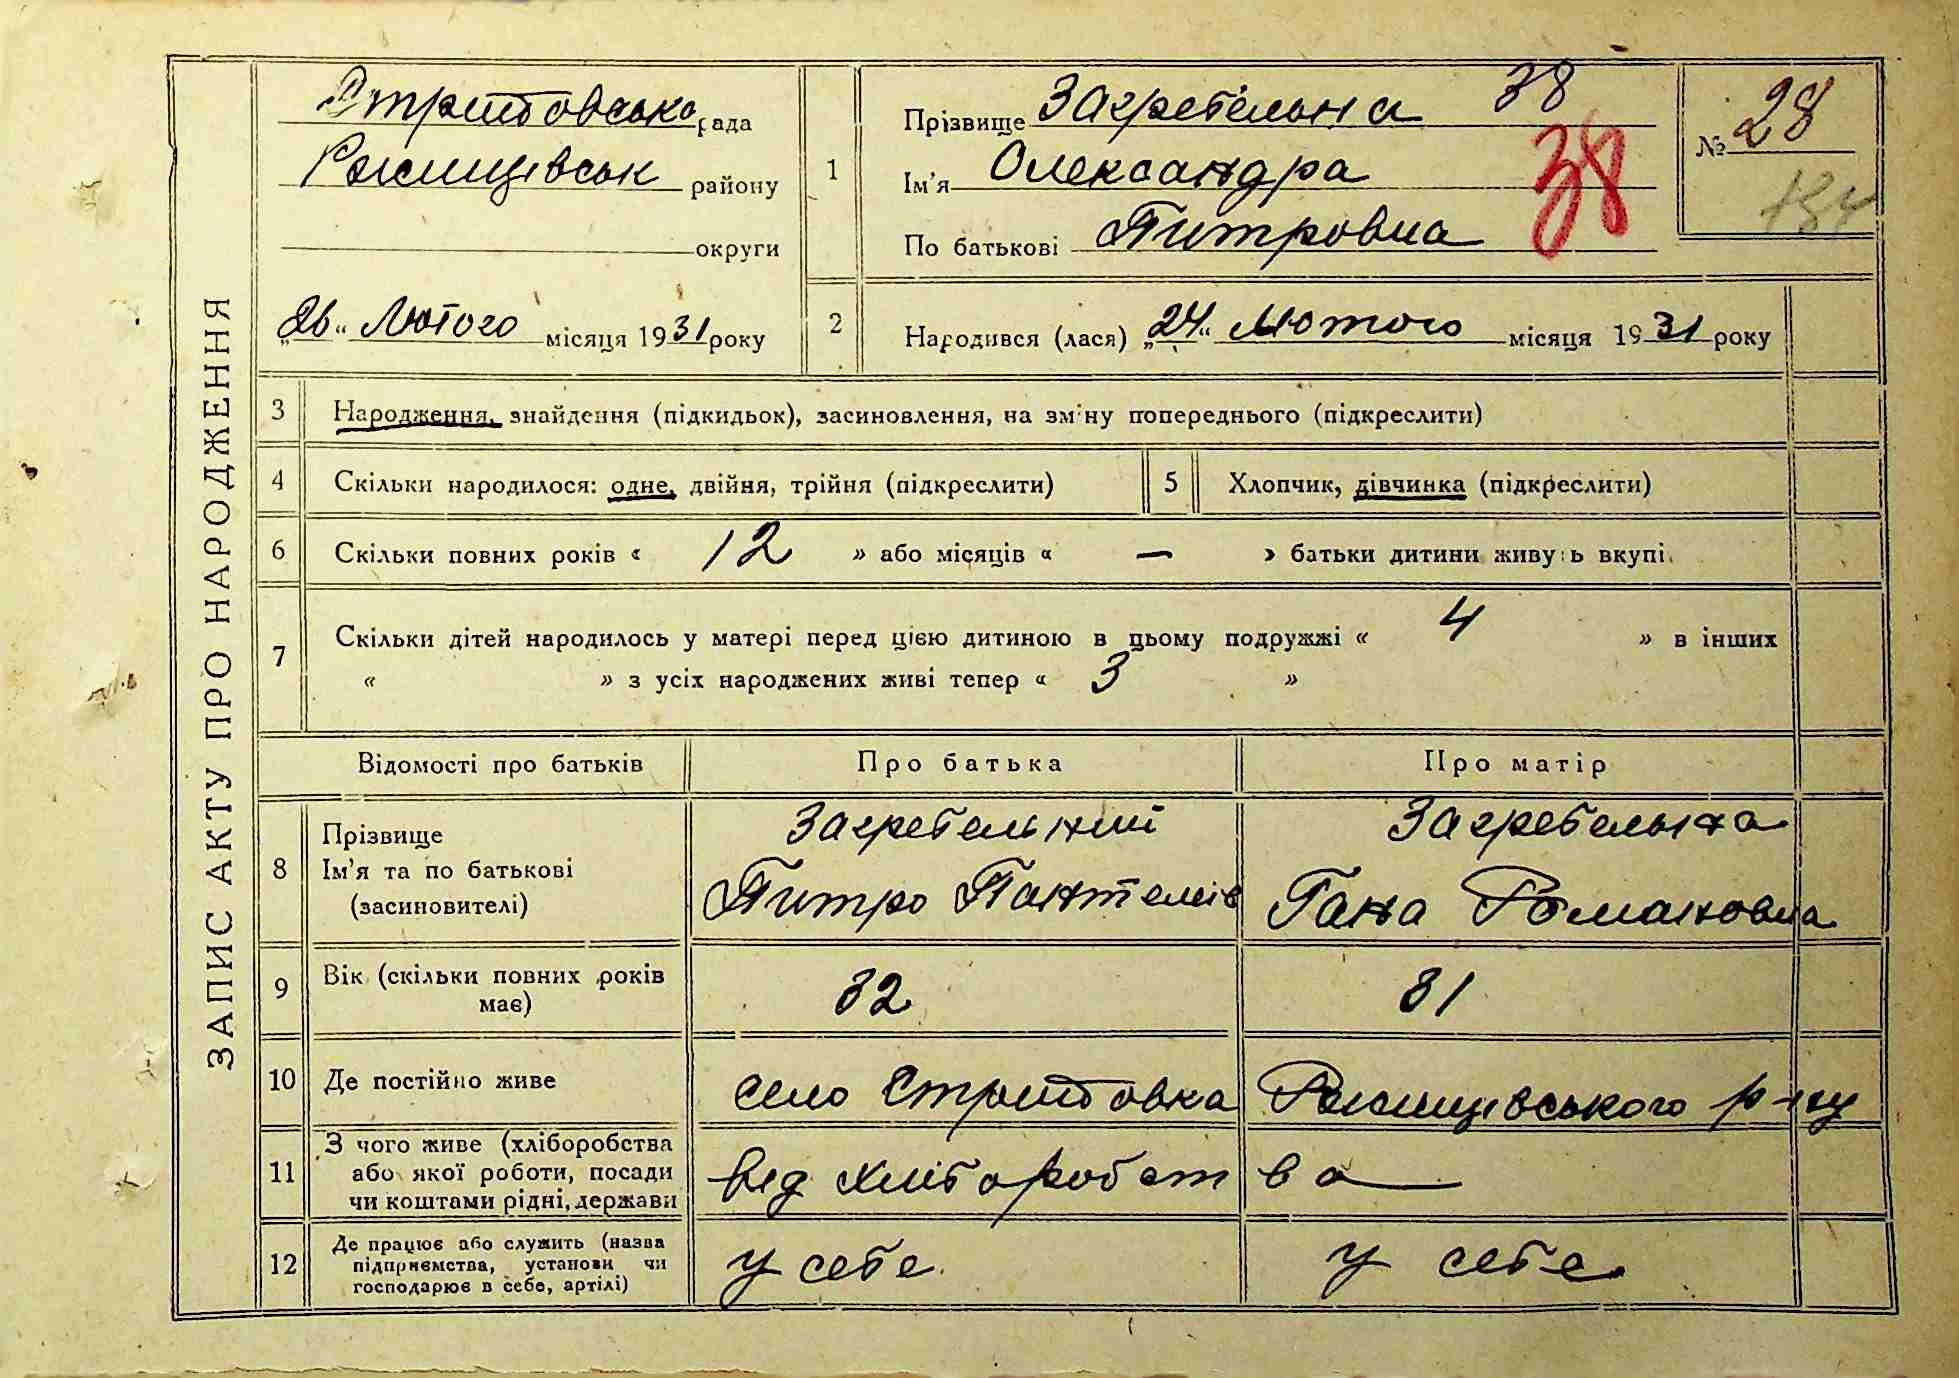 ЗАПИС АКТУ ПРО НАРОДЖЕННЯ
Стритовсько рада
Ржищівськ району
округи
„26“ Лютого місяця 1931 року
1
Прізвище Загребельна 38
Ім'я Олександра 38
По батькові Питровна
№ 28
2
Народився (лася) „24“ Лютого місяця 1931 року
3 Народження, знайдення (підкидьок), засиновлення, на зміну попереднього (підкреслити)
4 Скільки народилося: одне, двійня, трійня (підкреслити)
5 Хлопчик, дівчинка (підкреслити)
6 Скільки повних років « 12 » або місяців « — » батьки дитини живуть вкупі
7 Скільки дітей народилось у матері перед цією дитиною в цьому подружжі « 4 » в інших
« » з усіх народжених живі тепер « 3 »
Відомості про батьків Про батька Про матір
8
Прізвище
Ім'я та по батькові
(засиновителі)
Загребельний
Питро Пантелеів
Загребельна
Гана Романовна
9 Вік (скільки повних років
має)
32 31
10 Де постійно живе село Стритовка Ржищівського р-ну
11
З чого живе (хліборобства
або якої роботи, посади
чи коштами рідні, держави
від хліборобства
12
Де працює або служить (назва
підприємства, установи чи
господарює в себе, артілі)
у себе у себе